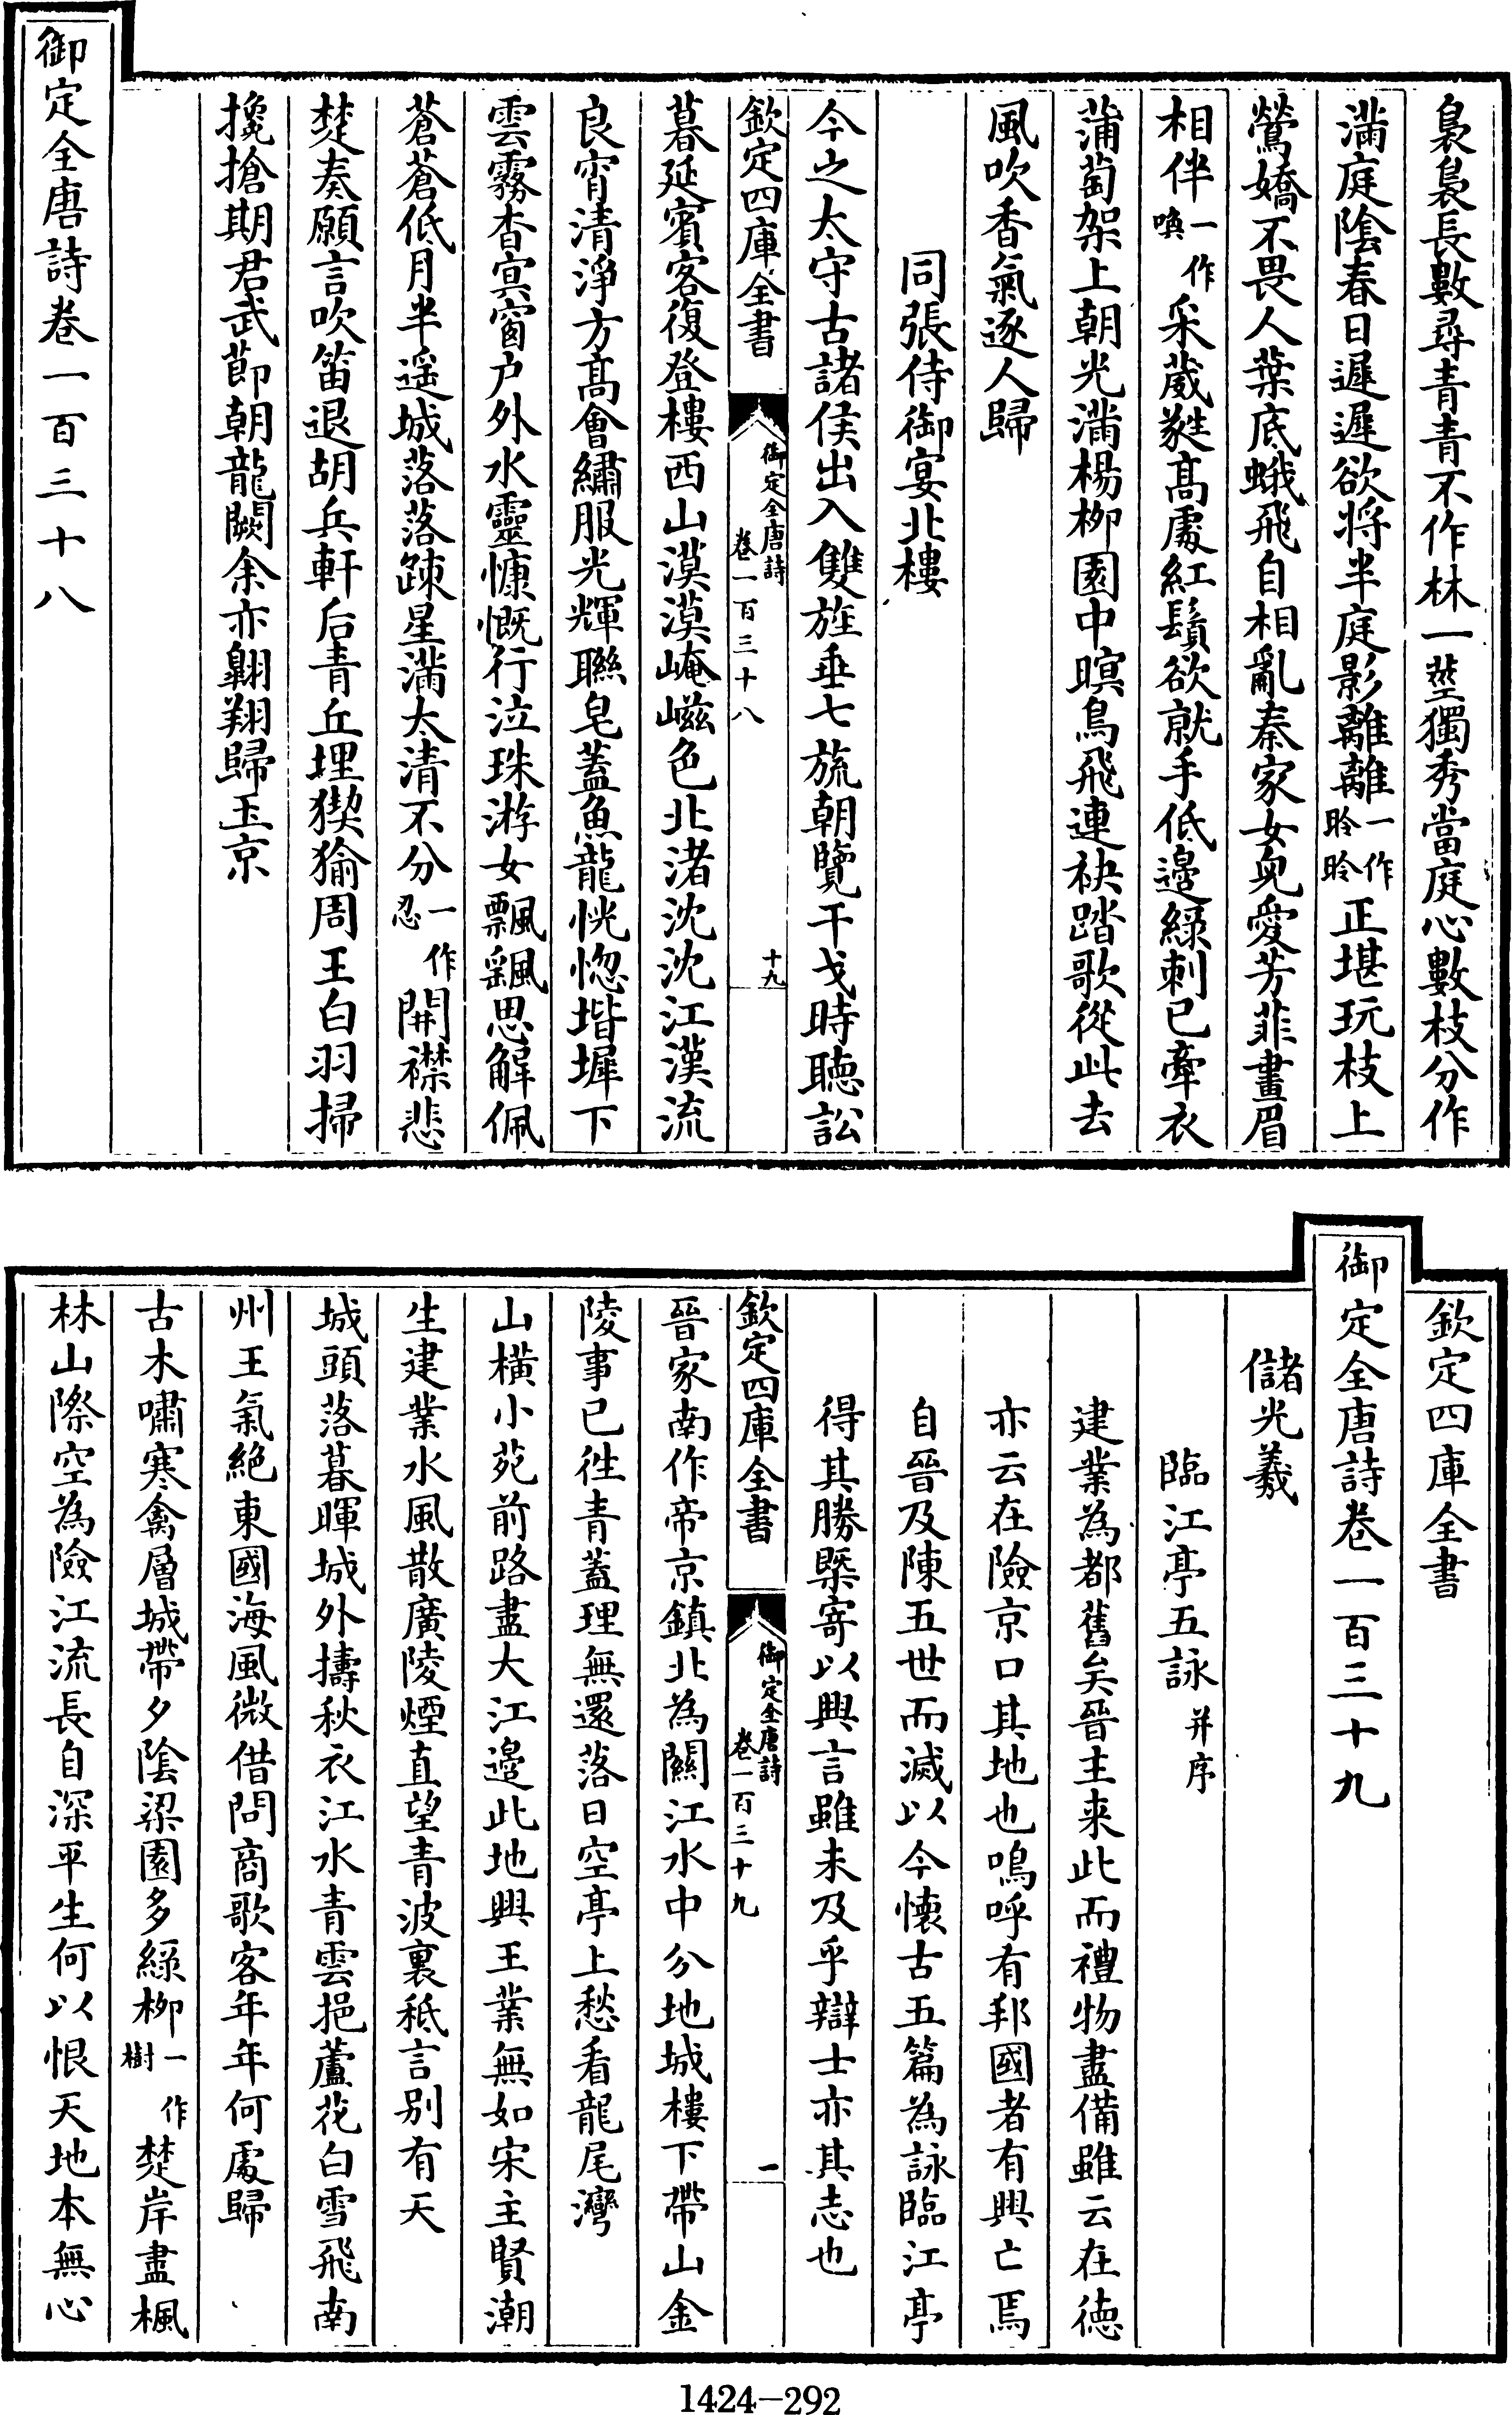 裊裊長數尋青青不作林一莖獨秀當庭心數枝分作
滿庭陰春日遲遲欲將半庭影離離一作昤昤正堪玩枝上
鶯嬌不畏人葉底蛾飛自相亂秦家女兒愛芳菲畫眉
相伴一作喚采葳蕤髙處紅鬚欲就手低邉緑刺已牽衣
蒲萄架上朝光滿楊柳園中暝鳥飛連袂踏歌從此去
風吹香氣逐人歸
同張侍御宴北樓
今之太守古諸侯出入雙旌垂七旒朝覽干戈時聴訟
欽定四庫全書
御定全唐詩
卷一百三十八
十九
暮延賓客復登樓西山漠漠崦嵫色北渚沈沈江漢流
良宵清淨方髙會繡服光輝聯皂蓋魚龍恍惚堦墀下
雲霧杳冥窗户外水靈慷慨行泣珠游女飄飖思解佩
蒼蒼低月半遥城落落疎星滿太清不分一作忍開襟悲
楚奏願言吹笛退胡兵軒后青丘埋猰㺄周王白羽掃
攙搶期君武節朝龍闕余亦翺翔歸玉京
御定全唐詩卷一百三十八
欽定四庫全書
御定全唐詩卷一百三十九
儲光羲
臨江亭五詠并序
建業為都舊矣晉主来此而禮物盡備雖云在德
亦云在險京口其地也嗚呼有邦國者有興亡焉
自晉及陳五世而滅以今懷古五篇為詠臨江亭
得其勝槩寄以興言雖未及乎辯士亦其志也
欽定四庫全書
御定全唐詩
卷一百三十九
一
晉家南作帝京鎮北為關江水中分地城樓下帶山金
陵事已徃青蓋理無還落日空亭上愁看龍尾灣
山橫小苑前路盡大江邉此地興王業無如宋主賢潮
生建業水風散廣陵煙直望青波裏秪言别有天
城頭落暮暉城外擣秋衣江水青雲挹蘆花白雪飛南
州王氣絶東國海風微借問商歌客年年何處歸
古木嘯寒禽層城帶夕陰梁園多緑柳一作樹楚岸盡楓
林山際空為險江流長自深平生何以恨天地本無心
1424-292